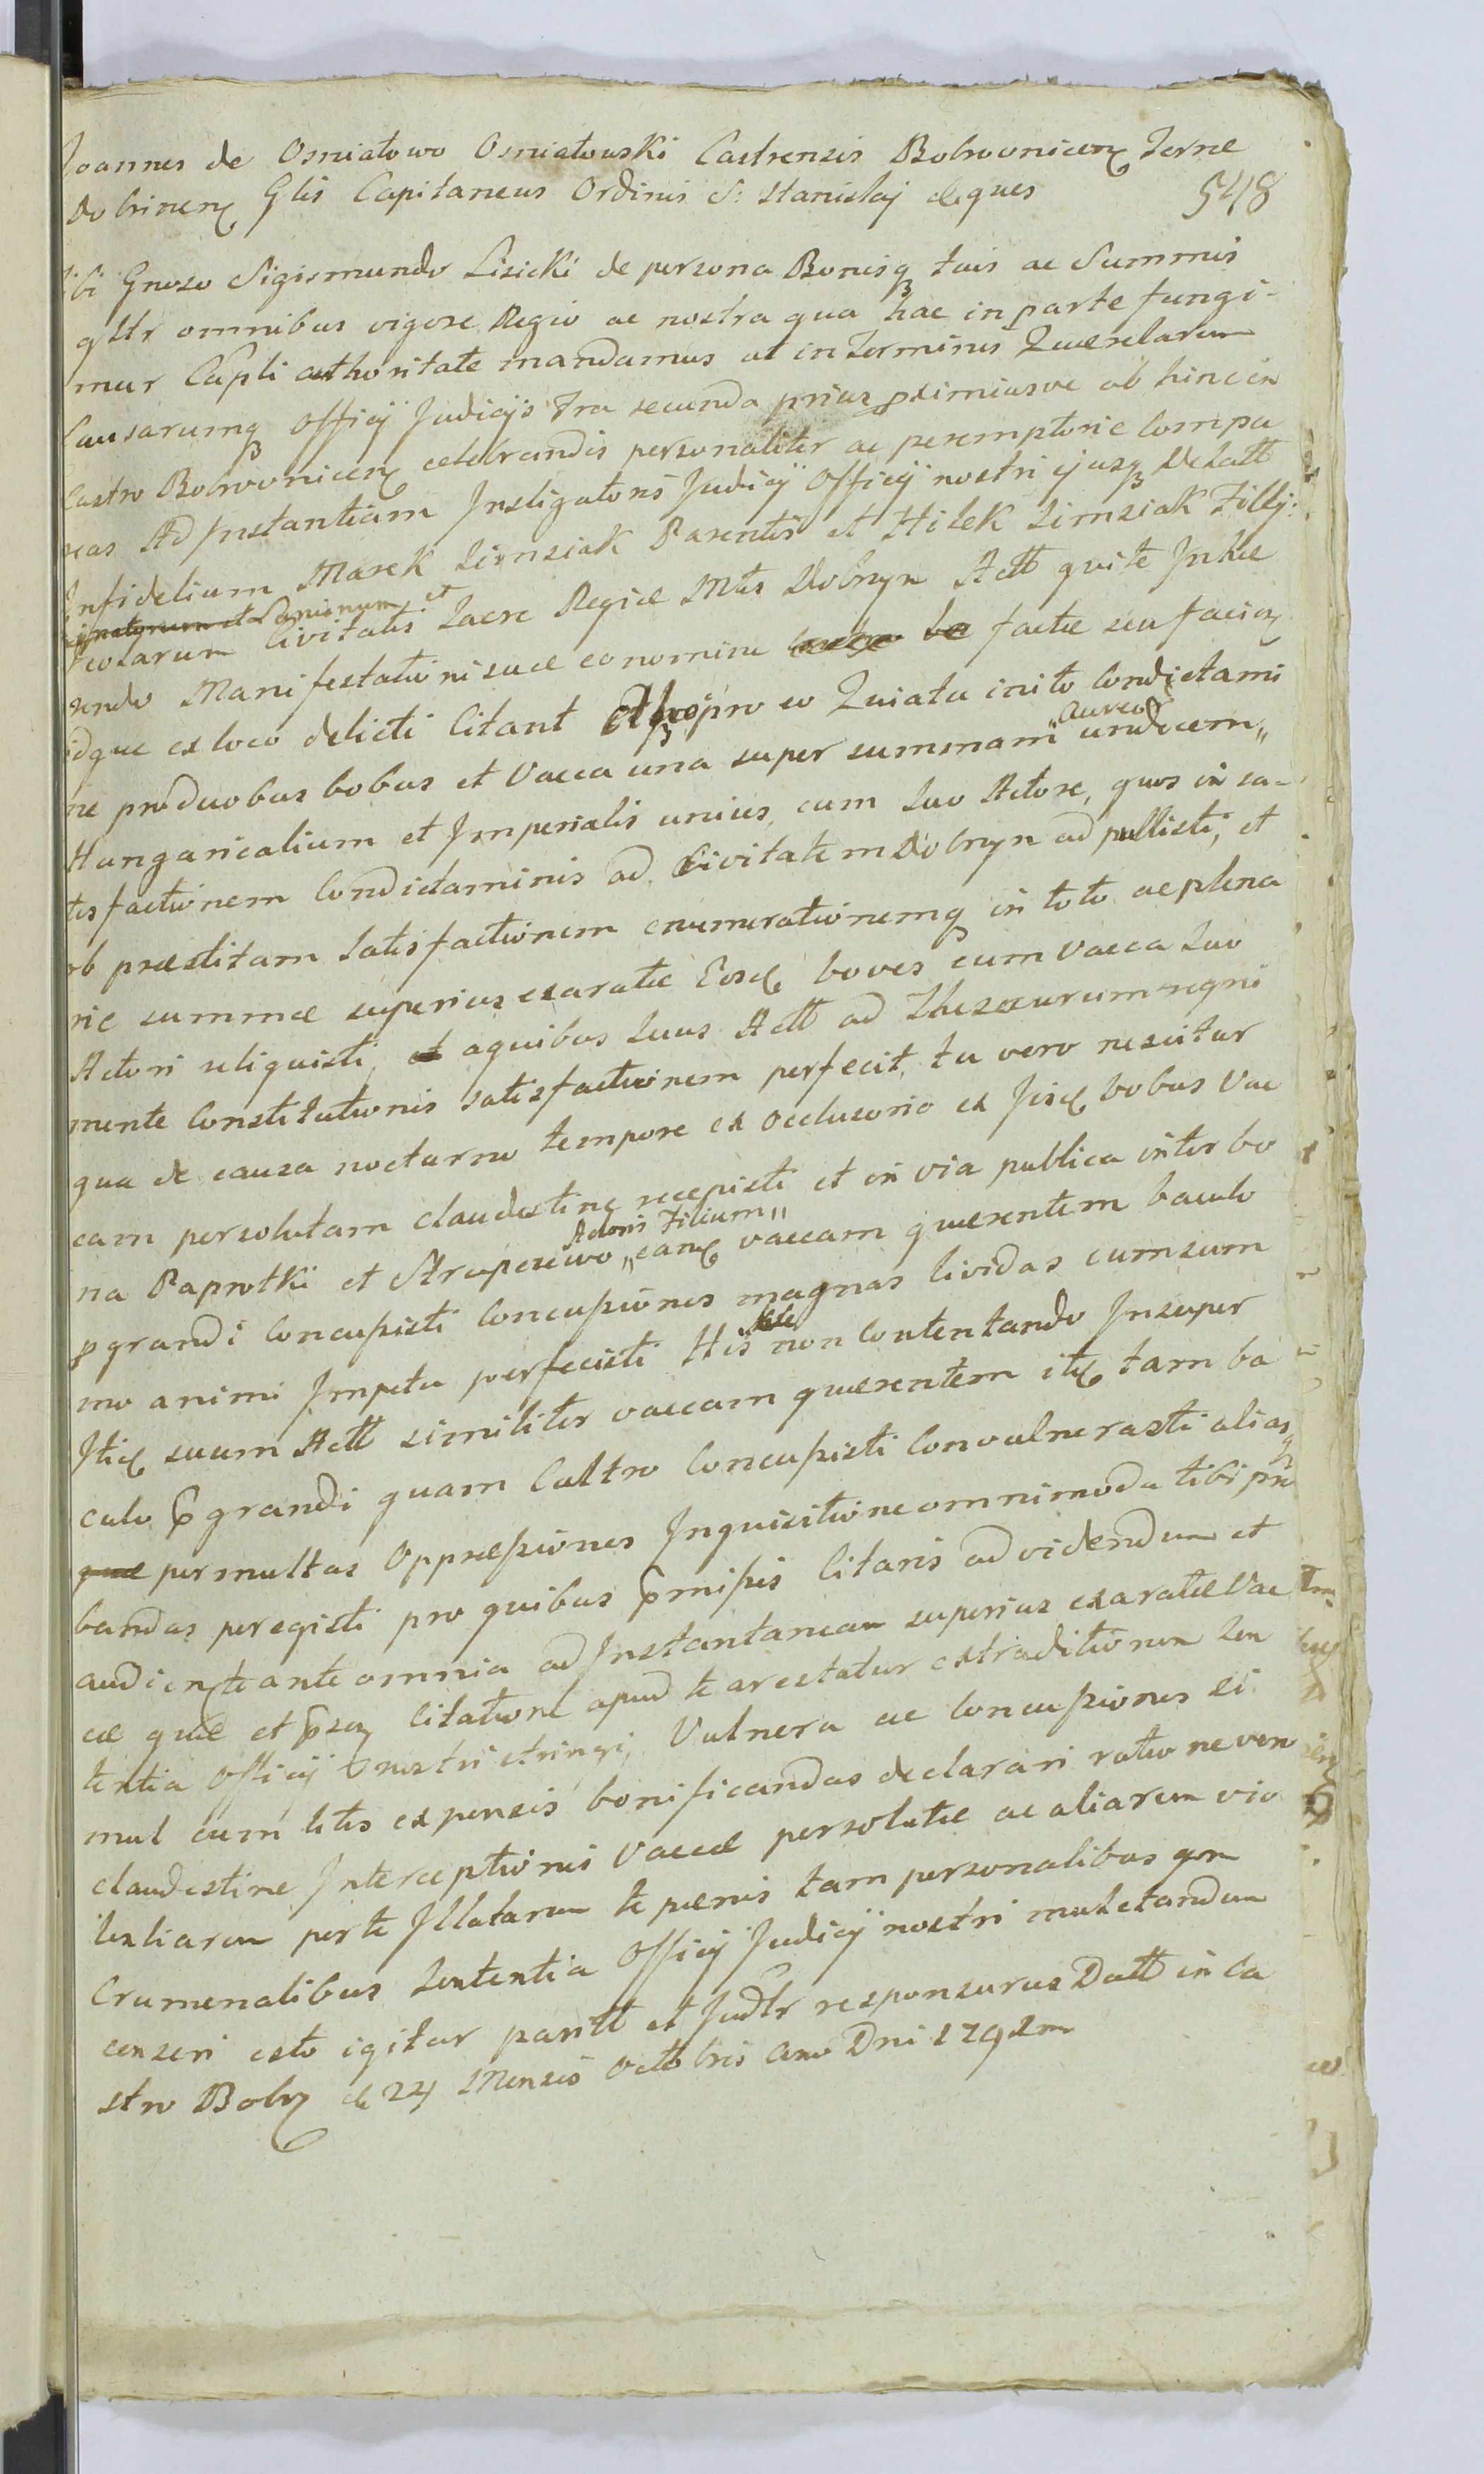 Joannes de Osmiałowo Osmiałowski Castrensis Bobrovnicen Terrae
Dobrinen Glis Capitaneus Ordinis S: Stanislaj Eques
548
Tibi Gnoso Sigismundo Lisicki de persona Bonisq tuis ac Summis
gltr omnibus vigore Regio ac nostra qua hac in parte fungi-
mur Capli authoritate mandamus ut in Terminis Querelarum
Causarumq Officij Judicijs Fra secunda prius proximiusve ab hinc in
Castro Bobrovnicen celebrandis personaliter ac peremptorie Compa
reas Ad Instantiam Instigatoris Judicij Officij nostri ejusq Delatt
Infidelium Marek Simsiak Parentis et Hilek Simsiak Fillij
et Lanionum et
Incolarum Civitatis Sacrae Regiae Mtis Dobrzyn Actt qui te Inhae
rendo Manifestationi suae eo nomine factae seu faciem
idque ex loco delicti Citant pro eo Quia tu inito Condictami
aureor
ne pro duobus bobus et Vacca una super summam undecem
Hungaricalium et Imperialis unius, cum suo Actore, quos in sa-
tisfactionem Condictaminis ad Civitatem Dobrzyn adpullisti, et
ob praestitam satisfactionem enumerationemq in toto ac plena
rie summae superius exaratae Eosd boves cum Vacca suo
Actori reliquisti, a quibus suus Actt ad Thesaurum regni
mente Constitutionis satisfactionem perfecit, tu vero nescitur
qua de causa nocturno tempore ex occlusorio ex Jisd bobus Vac
cam persolutam claudestine recepisti et in via publica inter bo
Actoris Filium
na Paprotki et Strupczewo eand vaccam quaerentem baculo
pgrandi Concussisti Concussiones magnas lividas cum sum
mo animi Impetu perfecisti His non Contentando Insuper
Itid suum Actt similiter vaccam quaerentem itd tam ba
culo pgrandi quam Cultro Concussisti Convulnerasti alias
permultas Oppraessiones Inquisitione omnimoda tibi pro
bandas peregisti pro quibus pmissis Citaris ad videndum et
audiendte ante omnia ad Instantaneam superius exaratae Vac
cae quae et psen Citatione apud te arestatur extraditionem Sen
tentia Officij nostri stringi, Vulnera ac Concussiones si
mul cum litis expensis bonificandas declarari ratione vero
claudestine Interceptionis Vaccae persolutae ac aliarum vio
lentiarum per te Illatarum te paenis tam personalibus qm
Crumenalibus Sententia Officij Judicij nostri mulctandum
censeri esto igitur paritt et Judlr responsurus Datt in Ca
stro Bobr d 24 Mensis Octobris Ano Dni 1792m